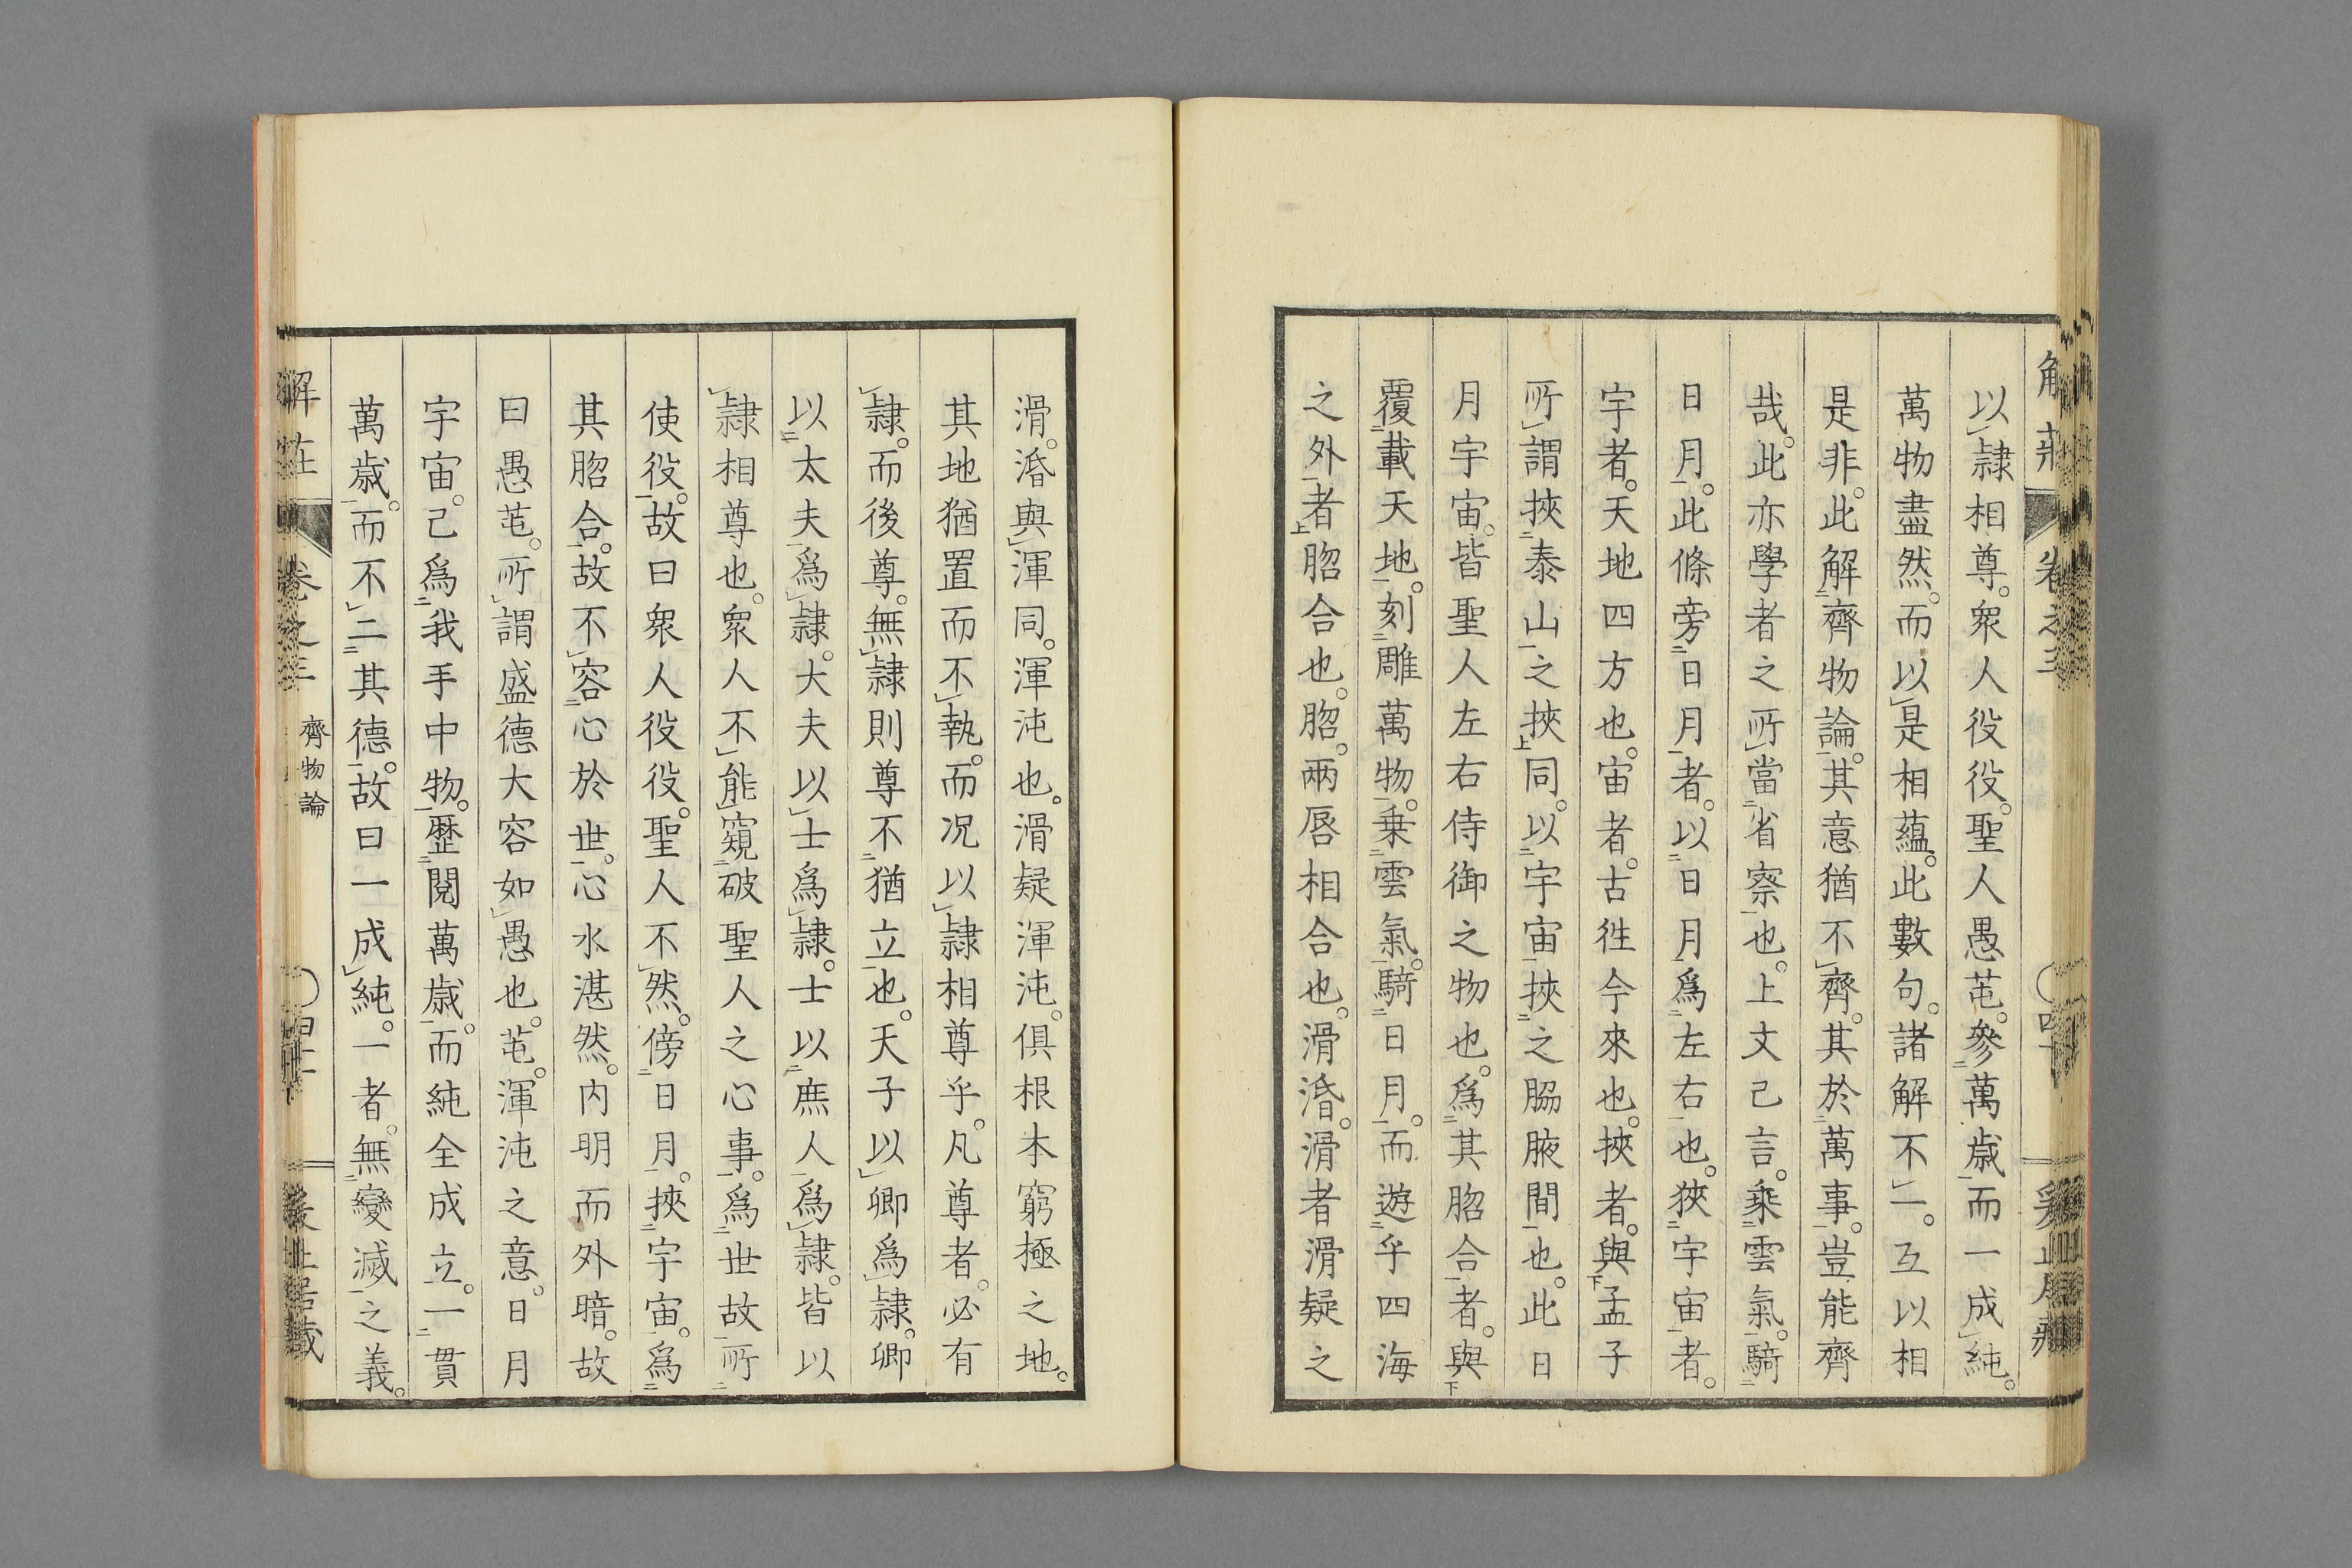 以隷相尊。衆人役役。聖人愚芚。參萬歲而一成純。
萬物盡然。而以是相蘊。此數句。諸解不一。互以相
是非。此解齊物論。其意猶不齊。其於萬事。豈能齊
哉。此亦學者之所當省察也。上文已言。乘雲氣。騎
日月。此條旁日月者。以日月爲左右也。挾宇宙者。
宇者。天地四方也。宙者。古徃今來也。挾者。與孟子
所謂挾泰山之挾同。以宇宙挾之脇腋間也。此日
月宇宙。皆聖人左右侍御之物也。爲其脗合者。與
覆載天地。刻雕萬物。乘雲氣。騎日月。而遊乎四海
之外者脗合也。脗。兩唇相合也。滑涽。滑者滑疑之
滑。涽與渾同。渾沌也。滑疑渾沌。俱根本窮極之地。
其地猶置而不執。而况以隷相尊乎。凡尊者。必有
隷。而後尊。無隷則尊不猶立也。天子以卿爲隷。卿
以太夫爲隷。大夫以士爲隷。士以庶人爲隷。皆以
隷相尊也。衆人不能窺破聖人之心事。爲世故所
使役。故曰衆人役役。聖人不然。傍日月。挾宇宙。爲
其脗合。故不容心於世。心水湛然。内明而外暗。故
曰愚芚。所謂盛德大容如愚也。芚。渾沌之意。日月
宇宙。已爲我手中物。歷閱萬歲。而純全成立。一貫
萬歲。而不二其德。故曰一成純。一者。無變滅之義。
解莊 卷之三 齊物論